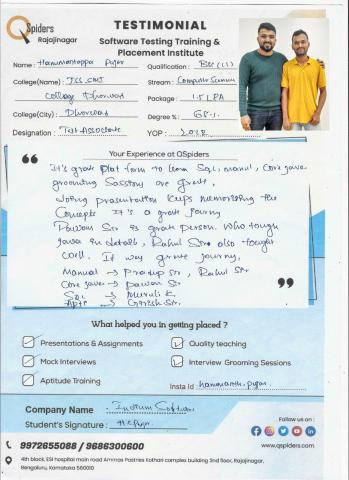 QSpiders
Rajajinagar
TESTIMONIAL
Software Testing Training &
Placement Institute
Name: Hanumantappa Pujar
Qualification: BSC
College(Name): JSS SMJ
Stream: Computer Science
College Dharwad
Package: 1.5 LPA
College(City): Dharwad
Degree %: 68%
Designation: Test Associate
YOP:
Your Experience at QSpiders
It's grate Plat form to learn Sql, manul, Core java
grooming Sasstons are great,
doing presentation keeps memorizing the
Concepts It's a grate journy
Pawan Sir is grate person. Who tough
java in details, Rahul Sir also tought
well. It way grate journy,
Manual → Pradip sir, Rahul Sir
Core java → pawan Sir
Sql → Murali K
Apti → Girish Sir
What helped you in getting placed ?
Presentations & Assignments
Quality teaching
Mock Interviews
Interview Grooming Sessions
Aptitude Training
Insta Id hanumanth.pujar.
Company Name : Indium Software
Student's Signature :
Follow us on :
9972655088 / 9686300600
www.qspiders.com
4th block, ESI hospital main road Ammas Pastries Kothari complex building 2nd floor, Rajajinagar,
Bengaluru, Karnataka 560010